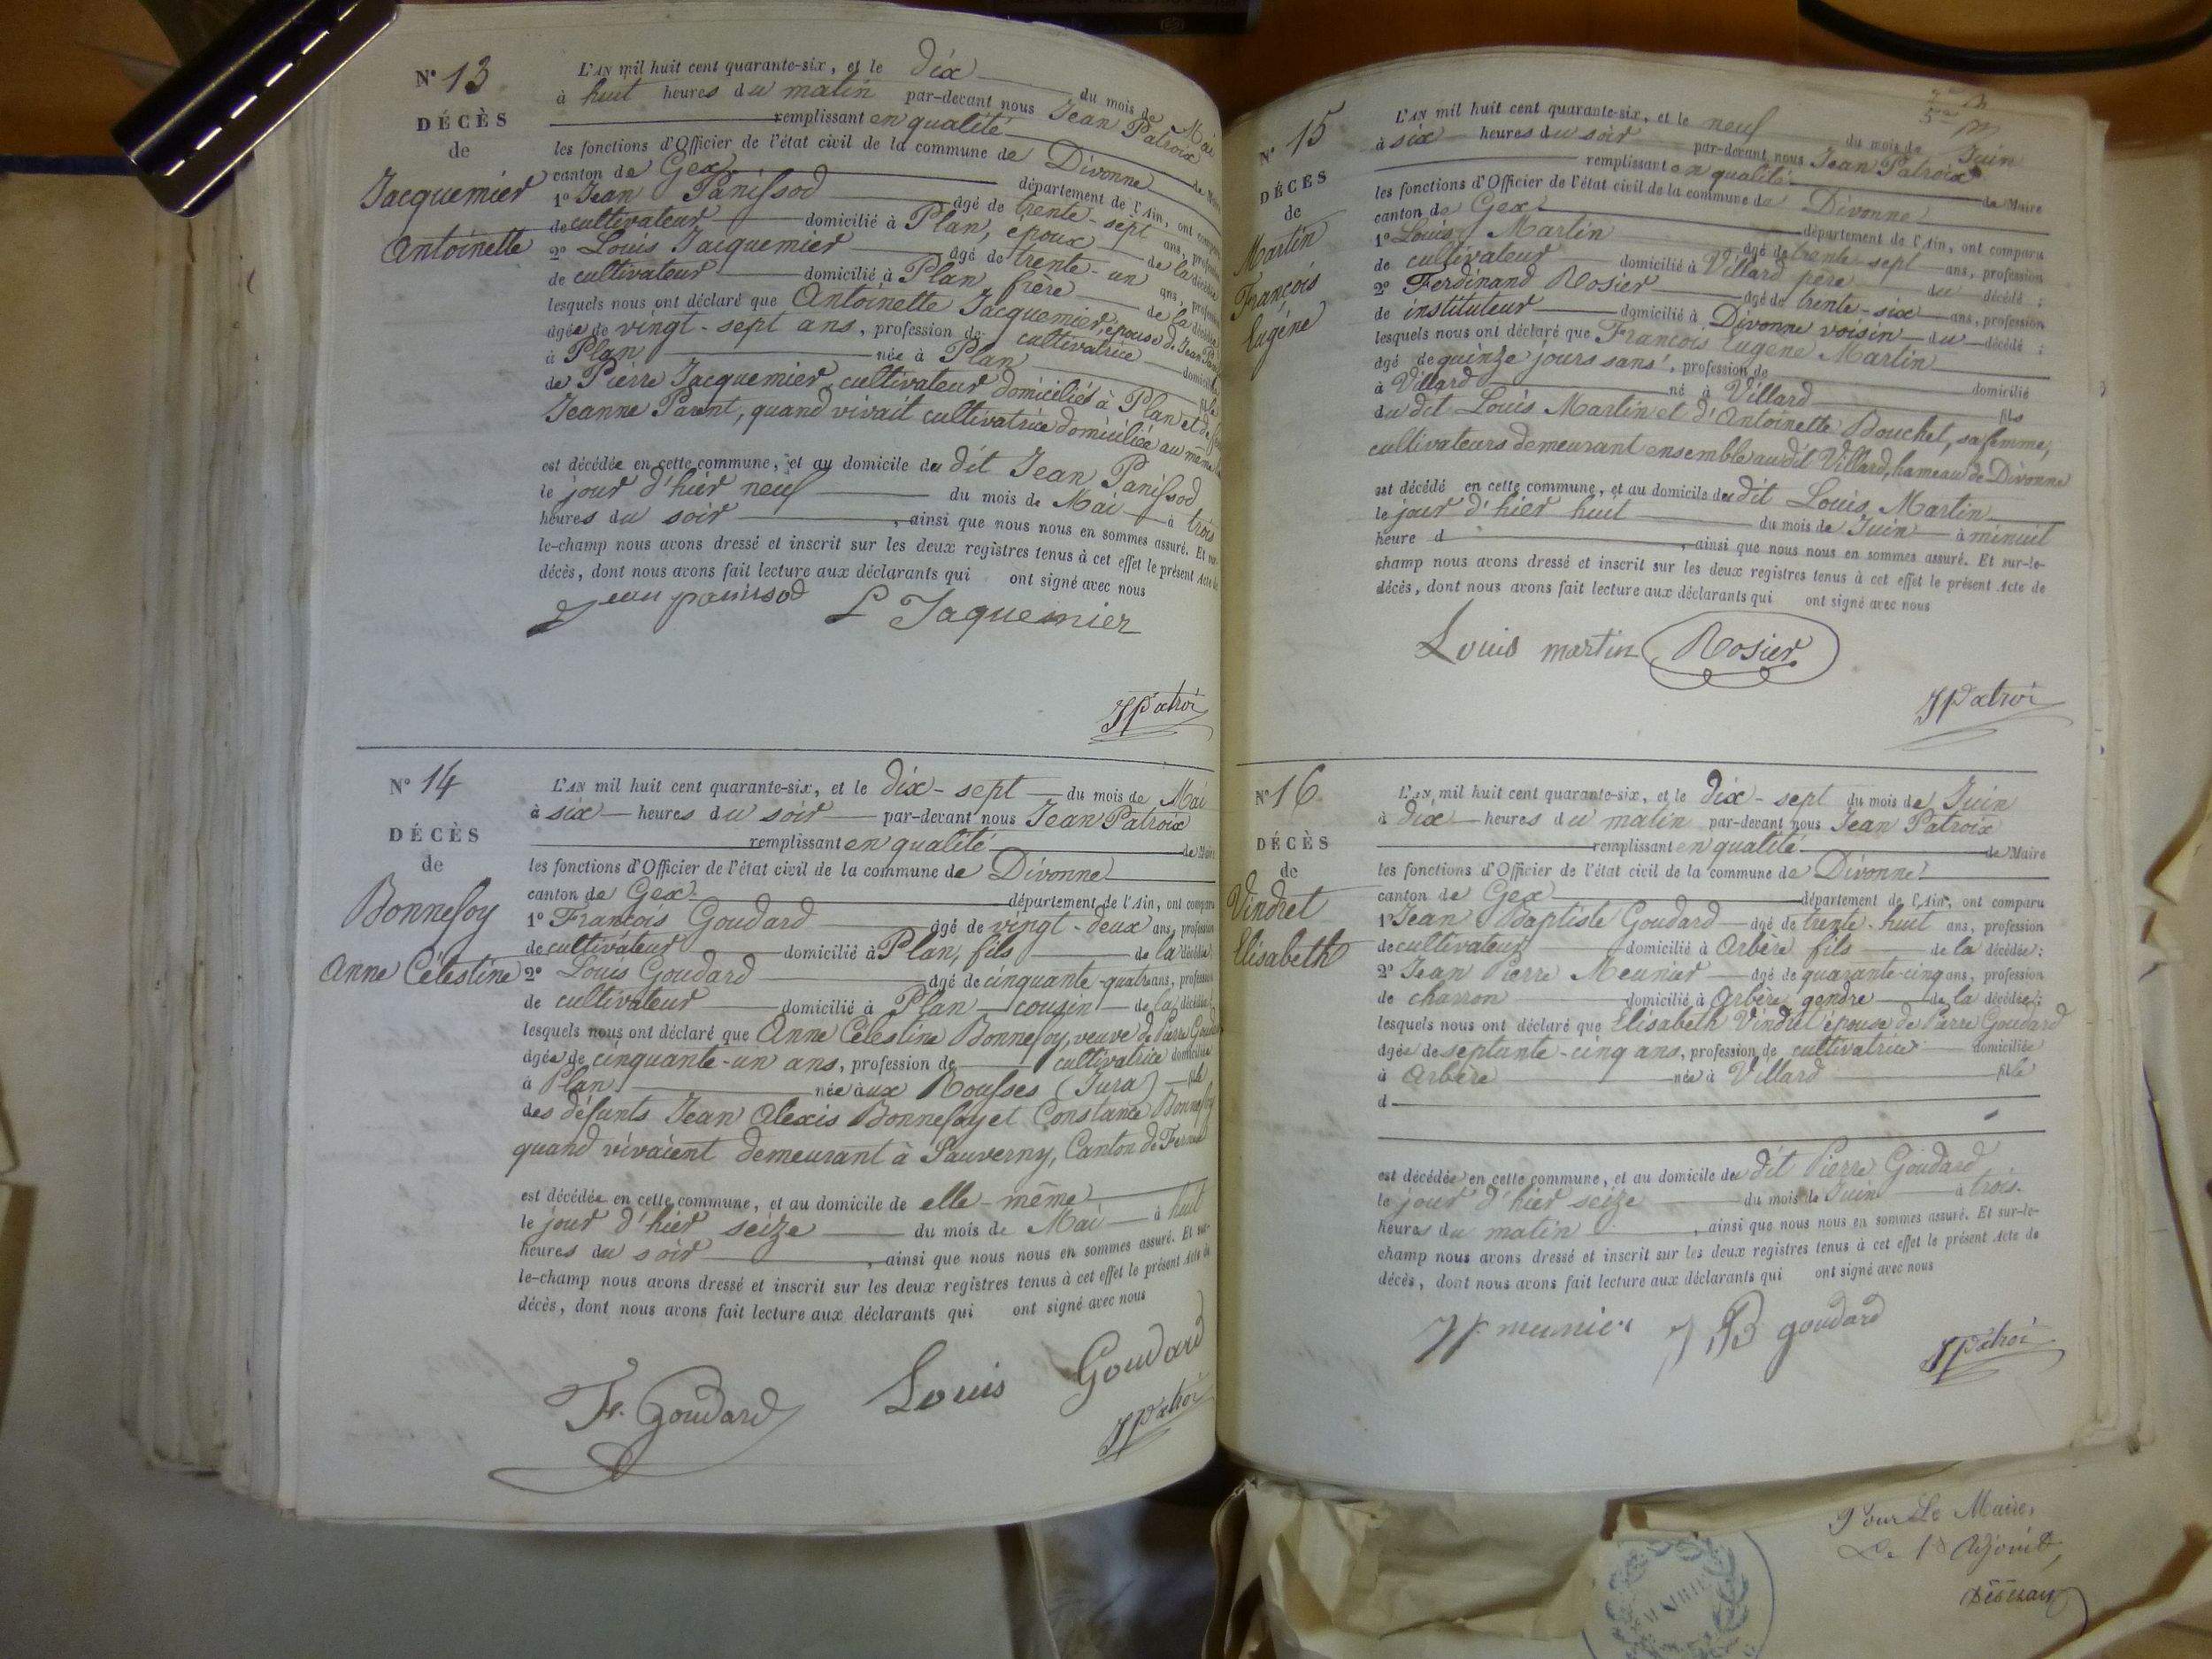 N° 13
DÉCÈS
de
Jacquemier
Antoinette
L'AN mil huit cent quarante-six, et le dix du mois de Mai
à huit heures du matin par-devant nous Jean Patroix
remplissant en qualité de Maire
les fonctions d'Officier de l'état civil de la commune de Divonne
canton de Gex département de l'Ain, ont comparu
1° Jean Panissod âgé de trente-sept ans, profession
de cultivateur domicilié à Plan, époux de la décédée
2° Louis Jacquemier âgé de trente-un ans, profession
de cultivateur domicilié à Plan frère de la décédée
lesquels nous ont déclaré que Antoinette Jacquemier, épouse de Jean
âgée de vingt-sept ans, profession de cultivatrice domiciliée
à Plan née à Plan fille
de Pierre Jacquemier, cultivateur domiciliés à Plan et de
Jeanne Parent, quand vivait cultivatrice domiciliée au même
est décédée en cette commune, et au domicile du dit Jean Panissod
le jour d'hier neuf du mois de Mai à trois
heures du soir, ainsi que nous nous en sommes assuré. Et sur-
le-champ nous avons dressé et inscrit sur les deux registres tenus à cet effet le présent Acte de
décès, dont nous avons fait lecture aux déclarants qui ont signé avec nous
Jean panisod L Jaquemier
JPatroi
N° 14
DÉCÈS
de
Bonnefoy
Anne Célestine
L'AN mil huit cent quarante-six, et le dix-sept du mois de Mai
à six heures du soir par-devant nous Jean Patroix
remplissant en qualité de Maire
les fonctions d'Officier de l'état civil de la commune de Divonne
canton de Gex département de l'Ain, ont comparu
1° François Goudard âgé de vingt-deux ans, profession
de cultivateur domicilié à Plan, fils de la décédée
2° Louis Goudard âgé de cinquante-quatre ans, profession
de cultivateur domicilié à Plan cousin de la décédée
lesquels nous ont déclaré que Anne Célestine Bonnefoy, veuve de Pierre Goudard
âgée de cinquante-un ans, profession de cultivatrice domiciliée
à Plan née aux Rousses (Jura) fille
des défunts Jean Alexis Bonnefoy et Constance Bonnefoy
quand vivaient demeurant à Sauverny, Canton de Ferney
est décédée en cette commune, et au domicile de elle-même
le jour d'hier seize du mois de Mai à huit
heures du soir, ainsi que nous nous en sommes assuré. Et sur-
le-champ nous avons dressé et inscrit sur les deux registres tenus à cet effet le présent Acte de
décès, dont nous avons fait lecture aux déclarants qui ont signé avec nous
F. Goudard Louis Goudard
JPatroi
N° 15
DÉCÈS
de
Martin
François
Eugéne
L'AN mil huit cent quarante-six, et le neuf du mois de Juin
à six heures du soir par-devant nous Jean Patroix
remplissant en qualité de Maire
les fonctions d'Officier de l'état civil de la commune de Divonne
canton de Gex département de l'Ain, ont comparu
1° Louis Martin âgé de trente-sept ans, profession
de cultivateur domicilié à Villard père du décédé :
2° Ferdinand Rosier âgé de trente-six ans, profession
de instituteur domicilié à Divonne voisin du décédé :
lesquels nous ont déclaré que François Eugene Martin
âgé de quinze jours sans, profession de domicilié
à Villard né à Villard fils
du dit Louis Martin et d'Antoinette Bouchet, sa femme,
cultivateurs demeurant ensemble au dit Villard, hameau de Divonne
est décédé en cette commune, et au domicile du dit Louis Martin
le jour d'hier huit du mois de Juin à minuit
heure d, ainsi que nous nous en sommes assuré. Et sur-le-
champ nous avons dressé et inscrit sur les deux registres tenus à cet effet le présent Acte de
décès, dont nous avons fait lecture aux déclarants qui ont signé avec nous
Louis martin Rosier
JPatroi
N° 16
DÉCÈS
de
Vindret
Elisabeth
L'AN mil huit cent quarante-six, et le dix-sept du mois de Juin
à dix heures du matin par-devant nous Jean Patroix
remplissant en qualité de Maire
les fonctions d'Officier de l'état civil de la commune de Divonne
canton de Gex département de l'Ain, ont comparu
1° Jean Baptiste Goudard âgé de trente-huit ans, profession
de cultivateur domicilié à Arbère fils de la décédée :
2° Jean Pierre Meunier âgé de quarante-cinq ans, profession
de charron domicilié à Arbère, gendre de la décédée :
lesquels nous ont déclaré que Elisabeth Vindret épouse de Pierre Goudard
âgée de septante-cinq ans, profession de cultivatrice domiciliée
à Arbère née à Villard fille
d
est décédée en cette commune, et au domicile du dit Pierre Goudard
le jour d'hier seize du mois de Juin à trois
heures du matin, ainsi que nous nous en sommes assuré. Et sur-le-
champ nous avons dressé et inscrit sur les deux registres tenus à cet effet le présent Acte de
décès, dont nous avons fait lecture aux déclarants qui ont signé avec nous
JP meunier JB goudard
JPatroi
Pour Le Maire,
Le 1er Adjoint,
MAIRIE